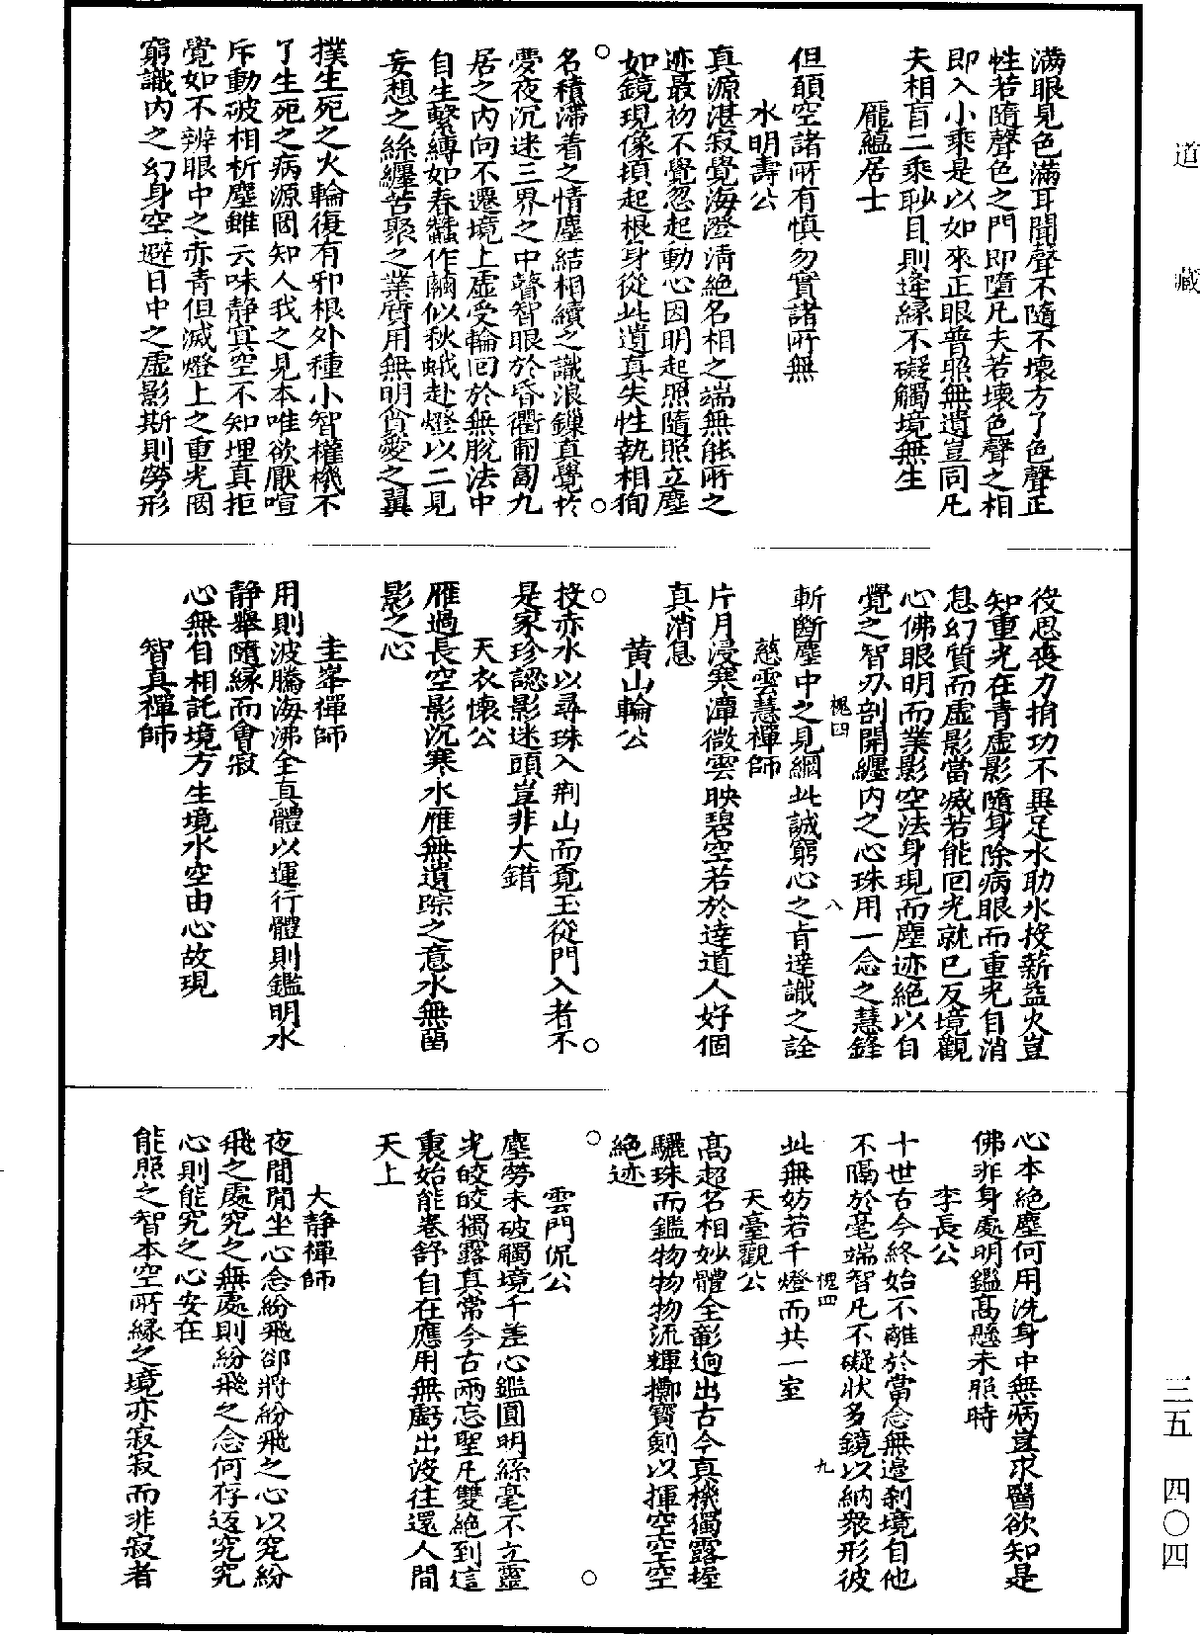 滿眼見色滿耳聞聲不隨不壞方了色聲正
性若隨聲色之門即墮凡夫若壞色聲之相
即入小乘是以如來正眼普照無遺豈同凡
夫相盲二乘眇目則逢緣不礙觸境無生
龐蘊居士
但願空諸所有慎勿實諸所無
水明壽公
真源湛寂覺海澄清絕名相之端無能所之
迹最初不覺忽起動心因明起照隨照立塵
如鏡現像頓起根身從此遺真失性執相徇
名積滯着之情塵結相續之識浪鏁真覺於
夢夜沉迷三界之中瞽智眼於昏衢匍匐九
居之內向不遷境上虛受輪回於無脫法中
自生繫縛如春蠶作繭似秋蛾赴燈以二見
妄想之絲纏苦聚之業質用無明貪愛之翼
撲生死之火輪復有邪根外種小智權機不
了生死之病源罔知人我之見本唯欲厭喧
斥動破相析塵雖云味静冥空不知埋真拒
覺如不辨眼中之赤青但滅燈上之重光罔
窮識內之幻身空避日中之虛影斯則勞形
役思喪力捐功不異足水助水投薪益火豈
知重光在青虛影隨身除病眼而重光自消
息幻質而虛影當滅若能回光就已反境觀
心佛眼明而業影空法身現而塵迹絕以自
覺之智刃剖開纏內之心珠用一念之慧鋒
槐四
八
斬斷塵中之見網此誠窮心之旨達識之詮
慈雲慧禪師
片月浸寒潭微雲映碧空若於達道人好個
真消息
黃山輪公
投赤水以尋珠入荆山而覓玉從門入者不
是家珍認影迷頭豈非大錯
天衣懷公
雁過長空影沉寒水雁無遺踪之意水無留
影之心
圭峯禪師
用則波騰海沸全真體以運行體則鑑明水
静舉隨緣而會寂
心無自相託境方生境水空由心故現
智真禪師
心本絕塵何用洗身中無病豈求醫欲知是
佛非身處明鑑高懸未照時
李長公
十世古今終始不離於當念無邊刹境自他
不隔於毫端智凡不礙狀多鏡以納衆形彼
槐四
九
此無妨若千燈而共一室
天臺觀公
高超名相妙體全彰逈出古今真機獨露握
驪珠而鑑物物物流輝擲寶劍以揮空空空
絕迹
雲門侃公
塵勞未破觸境千差心鑑圓明絲毫不立靈
光皎皎獨露真常今古兩忘聖凡雙絕到這
裏始能卷舒自在應用無虧出沒往還人間
天上
大静禪師
夜間閒坐心念紛飛郤將紛飛之心以究紛
飛之處究之無處則紛飛之念何存返究究
心則能究之心安在
能照之智本空所緣之境亦寂寂而非寂者
道藏
三五 四〇四